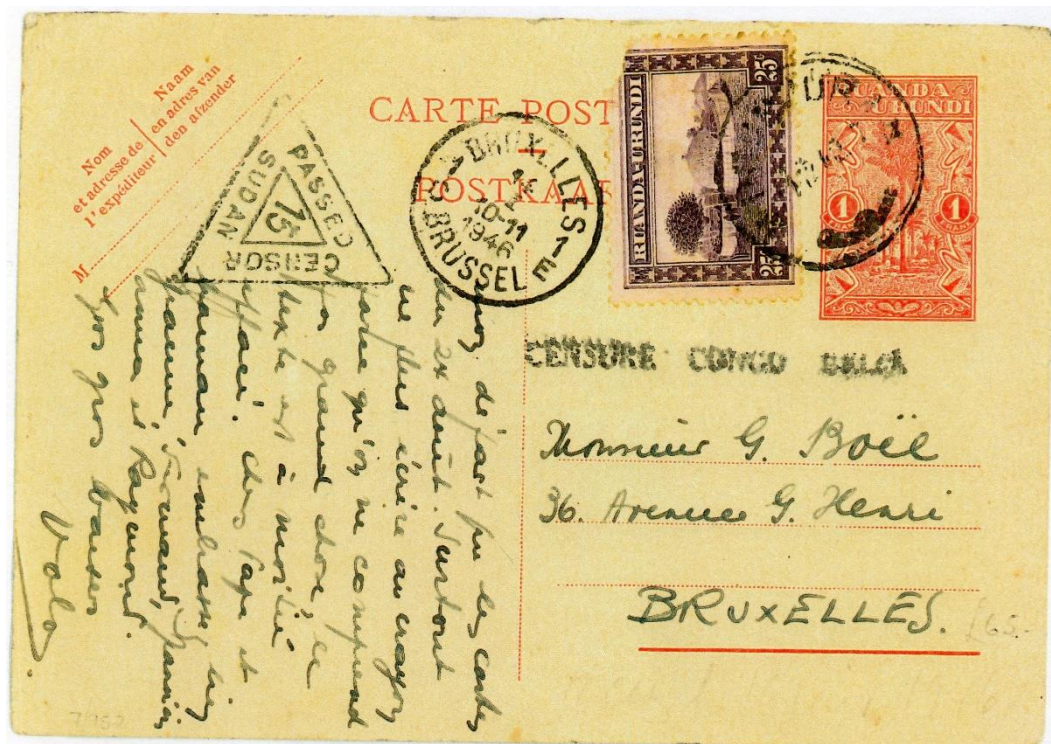 Nom
et adresse de
l'expéditeur
Naam
en adres van
den afzender
M
CARTE POST
POSTKAAR
PASSED
CENSOR
SUDAN
15
BRUXELLES 1
10-11
1946
BRUSSEL
E
RUANDA-URUNDI
25c
25c
RUANDA
URUNDI
1
1
CENSURE CONGO BELGE
Monsieur G. Boël
36. Avenue G. Henri
BRUXELLES.
£65.-
départ par les cartes
du 24 août. Surtout
ne plus écrire au crayon
parce qu'on ne comprend
pas grand chose, le
texte est à moitié
effacé. Chers Papa et
maman, embrassez
et Raymond.
Gros gros baisers